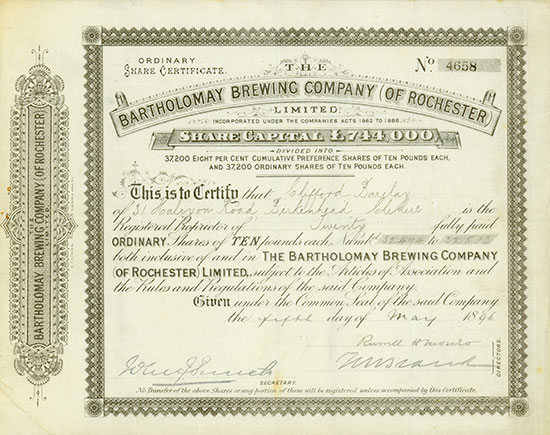 BARTHOLOMAY BREWING COMPANY (OF ROCHESTER)
LIMITED
ORDINARY
SHARE CERTIFICATE.
No. 4658
THE
BARTHOLOMAY BREWING COMPANY (OF ROCHESTER)
LIMITED
INCORPORATED UNDER THE COMPANIES ACTS 1862 TO 1886.
SHARE CAPITAL £744,000,
DIVIDED INTO
37,200 EIGHT PER CENT CUMULATIVE PREFERENCE SHARES OF TEN POUNDS EACH,
AND 37,200 ORDINARY SHARES OF TEN POUNDS EACH.
This is to Certify that Clifford Barclay
of 31 Road Birkenhead is the
Registered Proprietor of Twenty fully paid
ORDINARY Shares of TEN pounds each. Numbd. to
both inclusive of and in THE BARTHOLOMAY BREWING COMPANY
(OF ROCHESTER) LIMITED, subject to the Articles of Association and
the Rules and Regulations of the said Company.
Given under the Common Seal of the said Company
the fifth day of May 1896
DIRECTORS.
SECRETARY.
No Transfer of the above Shares or any portion of them will be registered unless accompanied by this Certificate.